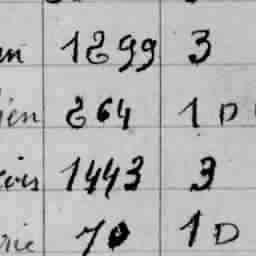 en 1899 3
ien 864 1 D
cois 1443 3
rie 70 1 D